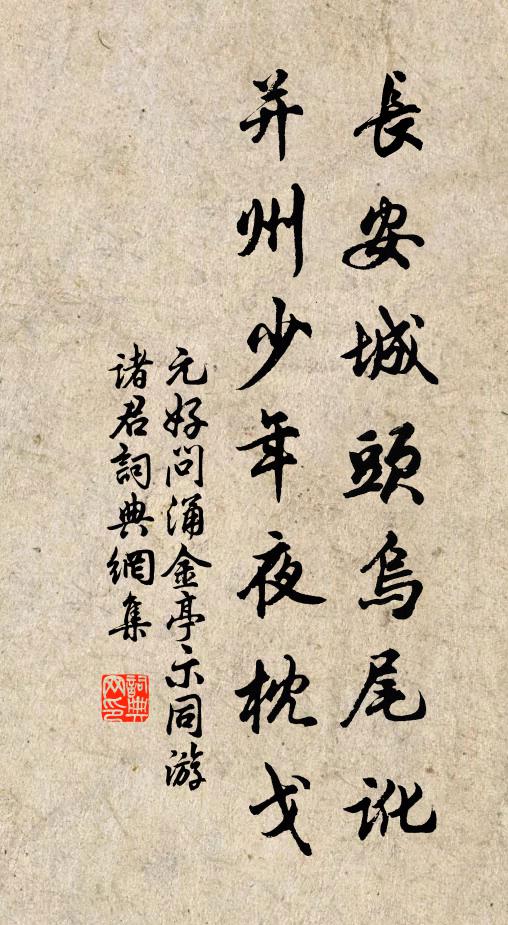 長安城頭烏尾訛
并州少年夜枕戈
元好問涌金亭示同游
諸君詞典網集
詞典网印